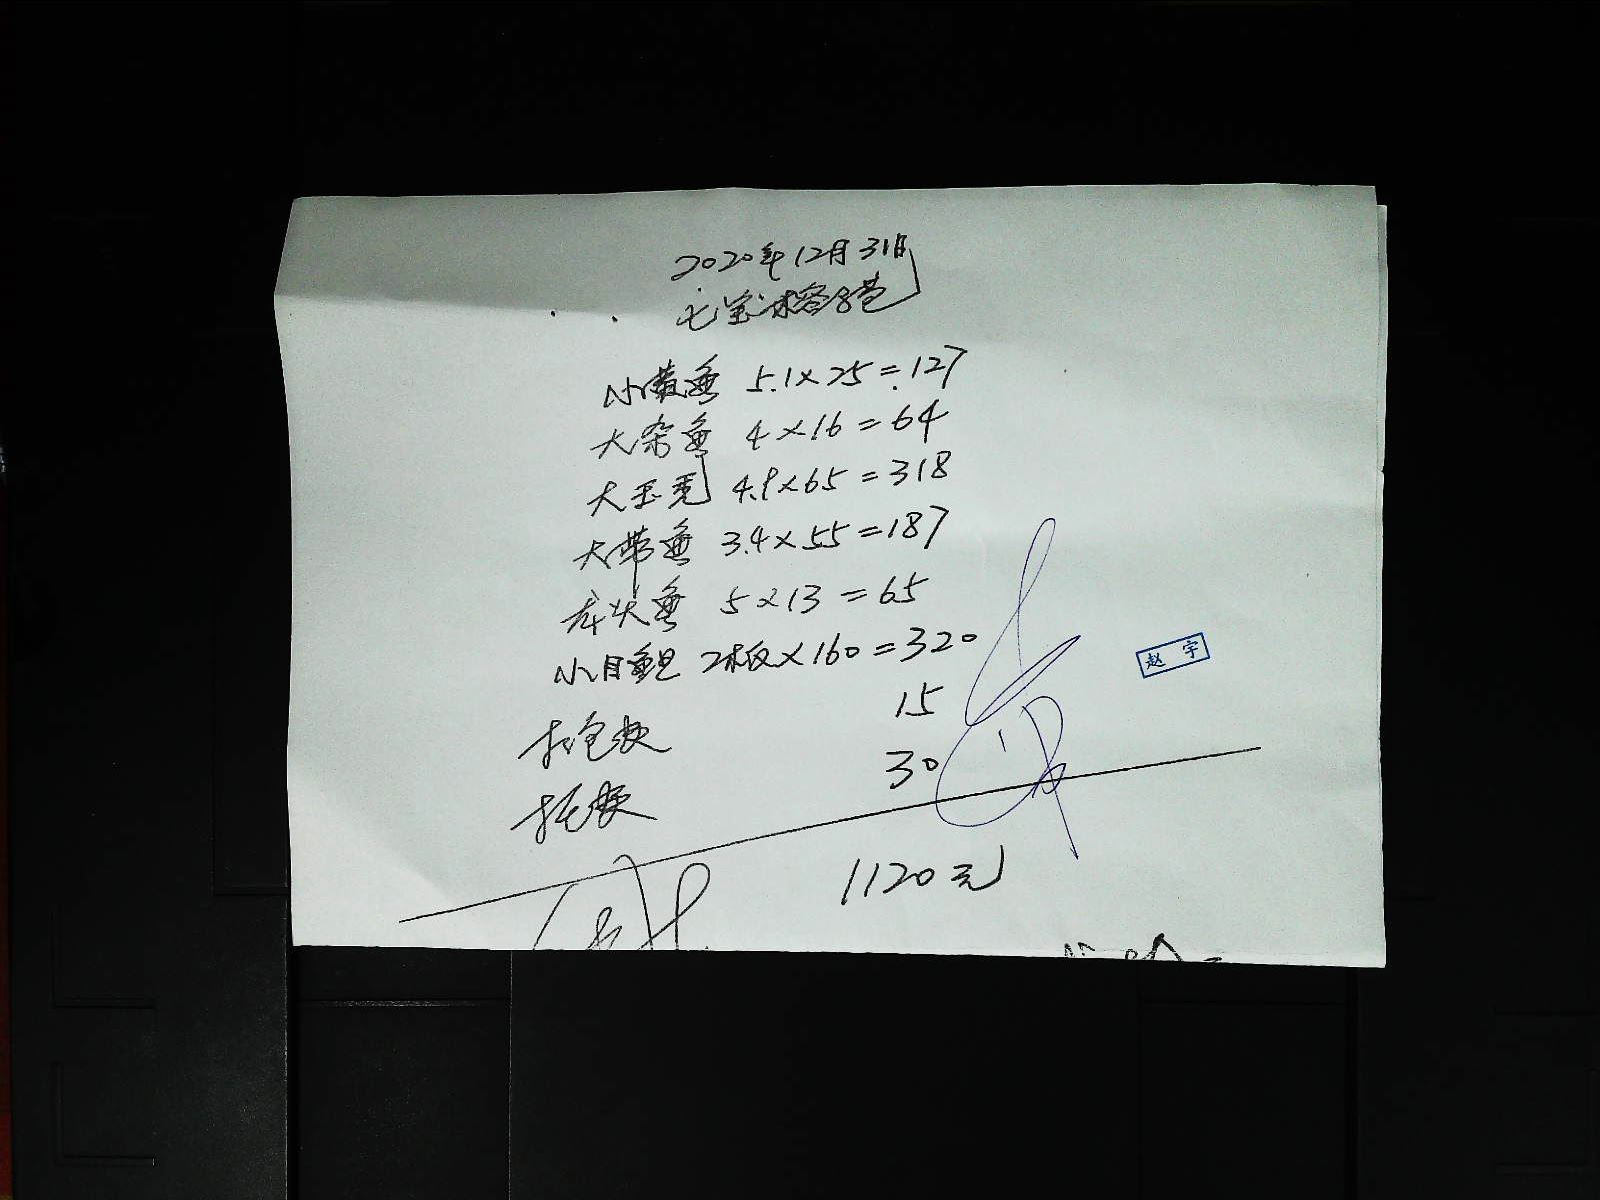 2020年12月31日
七宝榕港
小黄鱼 5.1×25=127
大杂鱼 4×16=64
大玉秃 4.9×65=318
大带鱼 3.4×55=187
龙头鱼 5×13=65
小目鱼 2板×160=320
打包费 15
托费 30
1120元
赵宇